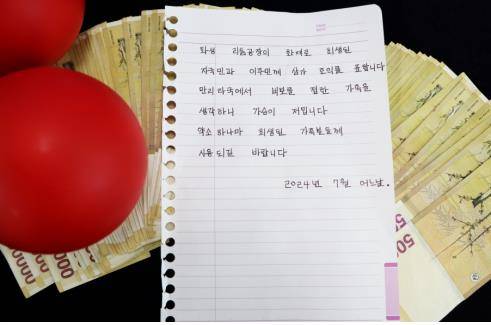 화성 리튬공장의 화재로 희생된
자국민과 이주민께 삼가 조의를 표합니다
만리타국에서 비보를 접한 가족을
생각하니 가슴이 저밉니다
약소하나마 희생된 가족분들께
사용되길 바랍니다
2024년 7월 어느날.
50